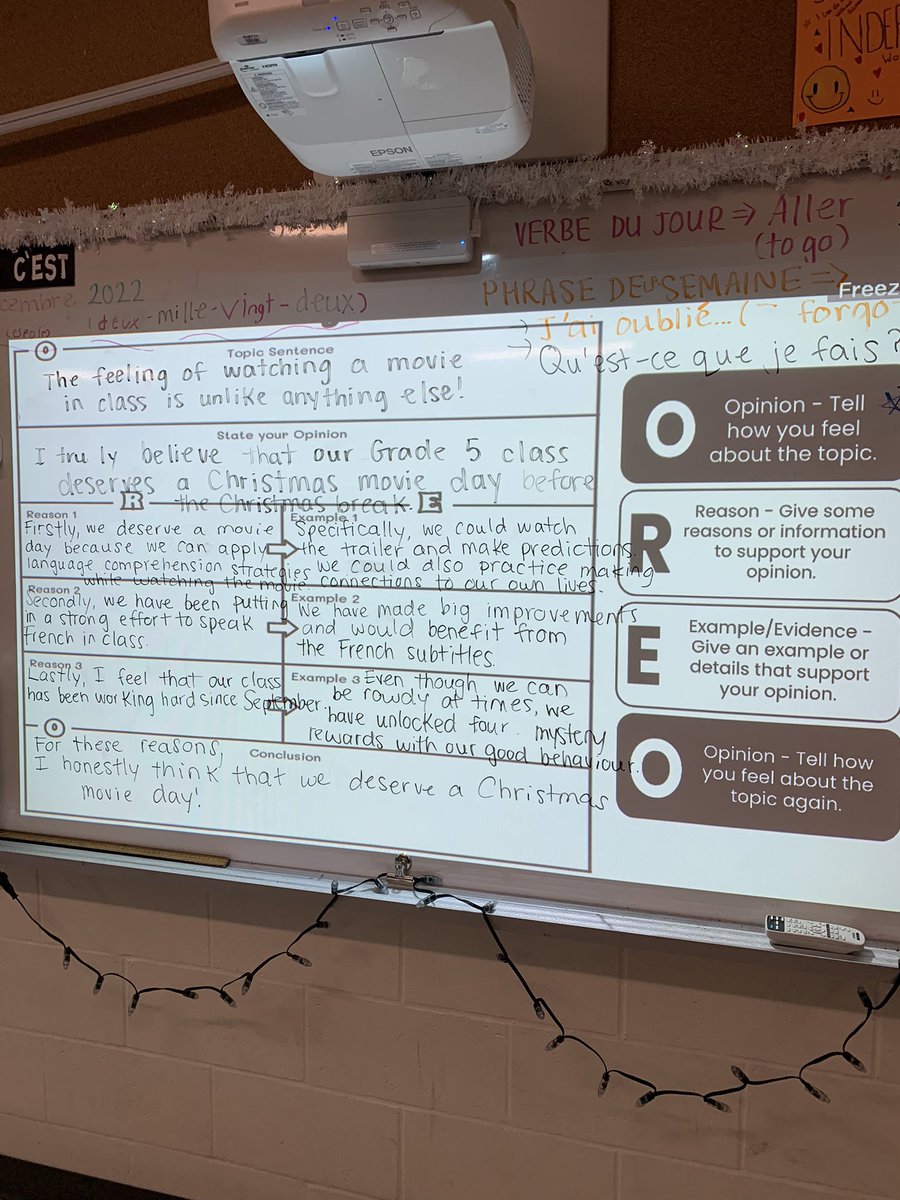 EPSON
HDMI
INDE
C'EST
VERBE DU JOUR ⇒ Aller
(to go)
cembre 2022
(deux-mille-vingt-deux)
PHRASE DE LA SEMAINE ⇒
Freez
→ J'ai oublié...(
→ Qu'est-ce que je fais?
O
Topic Sentence
The feeling of watching a movie
in class is unlike anything else!
State your Opinion
I truly believe that our Grade 5 class
deserves a Christmas movie day before
the Christmas break.
R
E
Reason 1
Firstly, we deserve a movie
day because we can apply
language comprehension strategies
while watching the movie.
Example 1
Specifically, we could watch
the trailer and make predictions.
we could also practice making
connections to our own lives.
Reason 2
Secondly, we have been putting
in a strong effort to speak
french in class.
Example 2
We have made big improvements
and would benefit from
the French subtitles.
Reason 3
Lastly, I feel that our class
has been working hard since September.
Example 3
Even though we can
be rowdy at times, we
have unlocked four mystery
rewards with our good behaviour.
O
Conclusion
For these reasons,
I honestly think that we deserve a Christmas
movie day!
O
Opinion - Tell
how you feel
about the topic.
R
Reason - Give some
reasons or information
to support your
opinion.
E
Example/Evidence -
Give an example or
details that support
your opinion.
O
Opinion - Tell how
you feel about the
topic again.